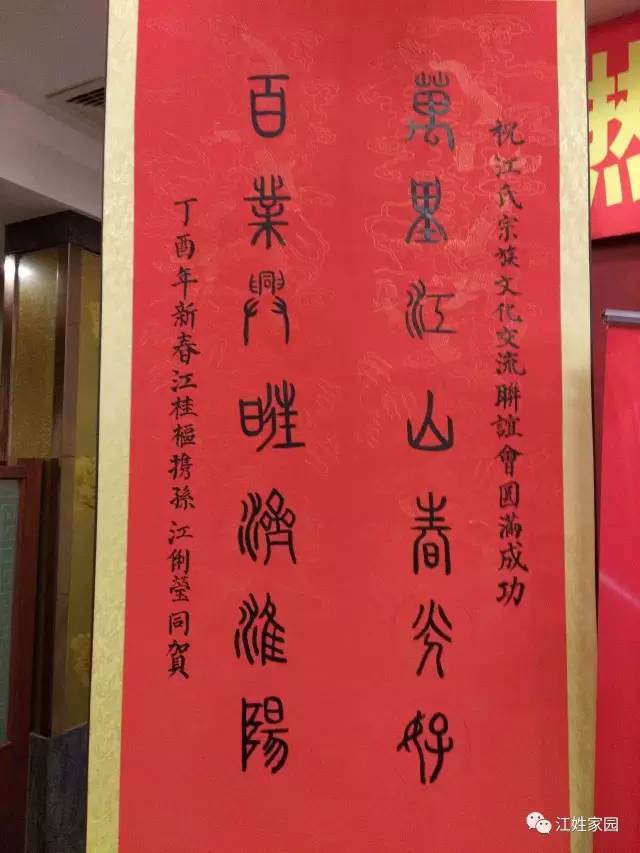 祝江氏宗族文化交流聯誼會圓滿成功
萬里江山春光好
百業興旺濟淮陽
丁酉年新春江桂樞携孫江俐瑩同賀
热
江姓家园